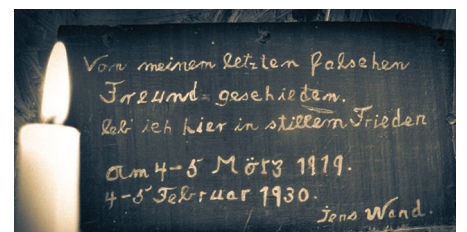 Von meinem letzten falschen
Freund geschieden.
leb' ich hier in stillem Frieden
am 4-5 März 1919.
4-5 Februar 1930.
Jens Wand.